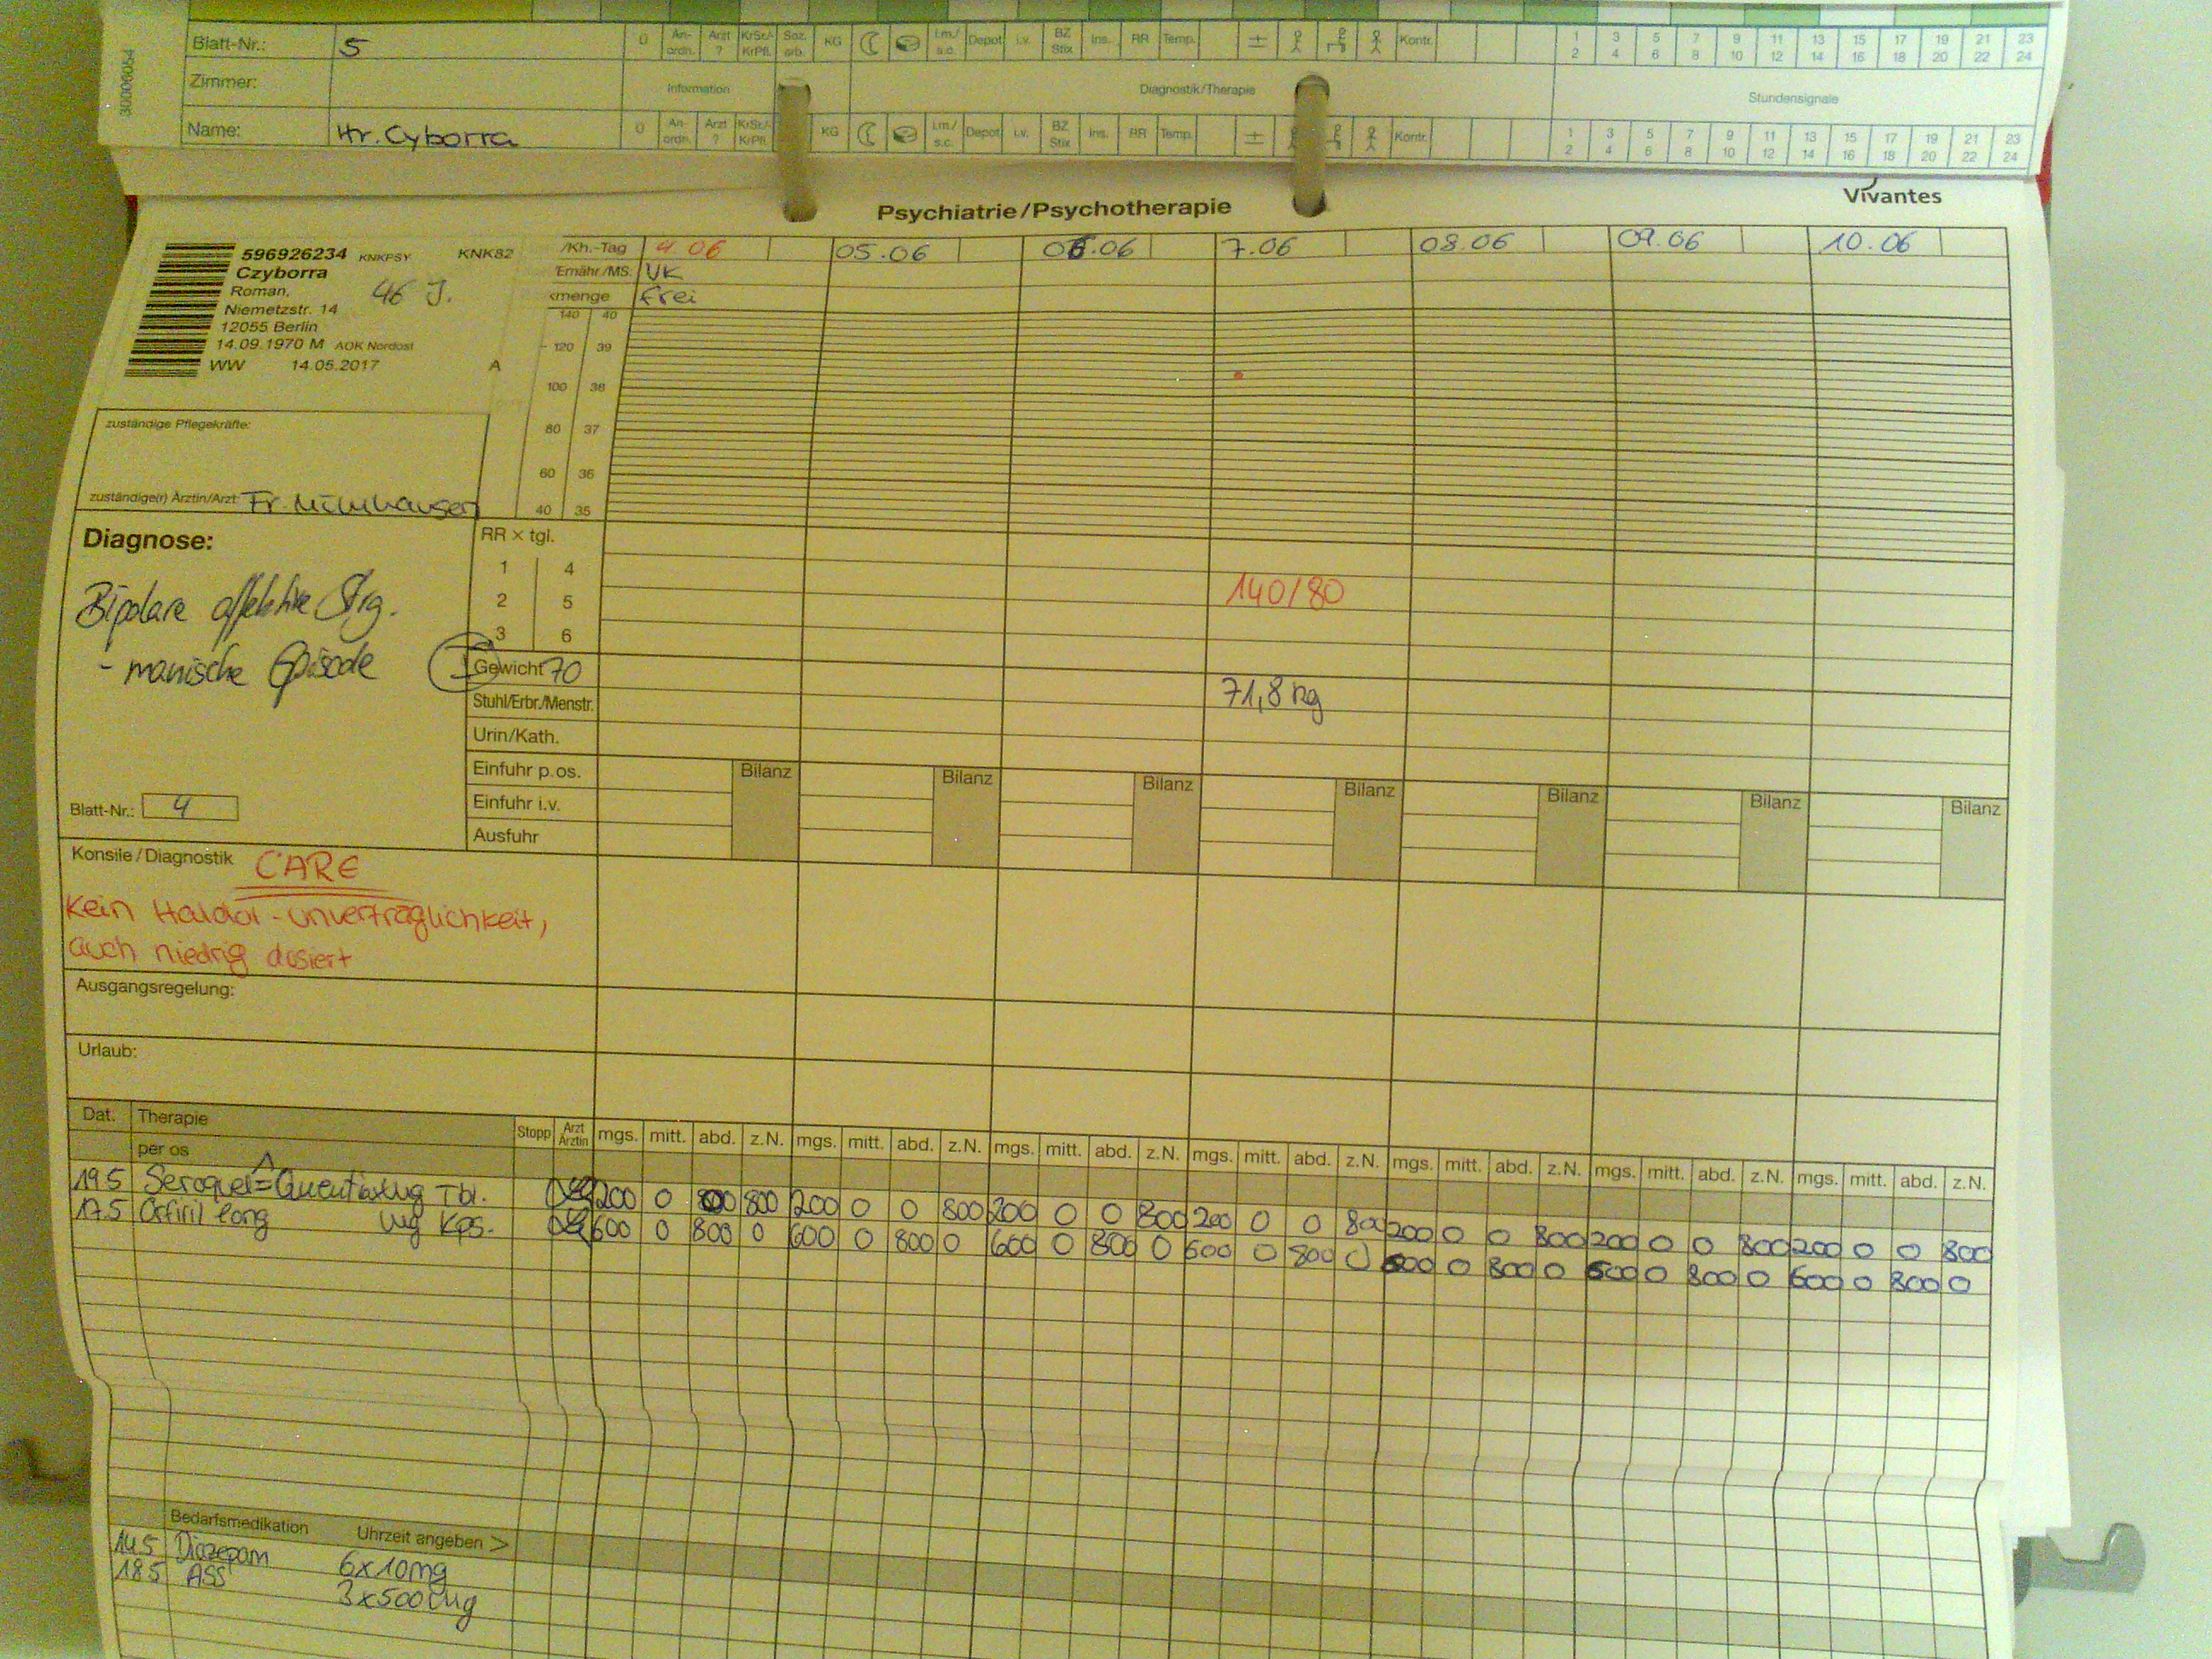 30006054
Blatt-Nr.: 5
0 An-ordn. Arzt ? KrSr./KrPfl. Soz. arb. KG i.m./s.c. Depot i.v. BZ Stix Ins. RR Temp. ± Kontr. 1 2 3 4 5 6 7 8 9 10 11 12 13 14 15 16 17 18 19 20 21 22 23 24
Zimmer:
Information Diagnostik/Therapie Stundensignale
Name: Hr. Cyborra
0 An-ordn. Arzt ? KrSr./KrPfl. KG i.m./s.c. Depot i.v. BZ Stix Ins. RR Temp. ± Kontr. 1 2 3 4 5 6 7 8 9 10 11 12 13 14 15 16 17 18 19 20 21 22 23 24
Vivantes
Psychiatrie/Psychotherapie
596926234 KNKPSY KNK82
Czyborra
Roman, 46 J.
Niemetzstr. 14
12055 Berlin
14.09.1970 M AOK Nordost
WW 14.05.2017 A
/Kh.-Tag 4.06 05.06 06.06 7.06 08.06 09.06 10.06
Ernähr./MS. VK
menge frei
140 40
120 39
100 38
80 37
60 36
40 35
zuständige Pflegekräfte:
zuständige(r) Ärztin/Arzt: Fr.
Diagnose:
Bipolare affektive Strg.
- manische Episode
RR × tgl.
1 4
2 5 140/80
3 6
Gewicht 70 71,8 kg
Stuhl/Erbr./Menstr.
Urin/Kath.
Einfuhr p.os. Bilanz Bilanz Bilanz Bilanz Bilanz Bilanz Bilanz
Einfuhr i.v.
Ausfuhr
Blatt-Nr.: 4
Konsile/Diagnostik CARE
Kein Haldol - Unverträglichkeit,
auch niedrig dosiert
Ausgangsregelung:
Urlaub:
Dat. Therapie Stopp Arzt Ärztin mgs. mitt. abd. z.N. mgs. mitt. abd. z.N. mgs. mitt. abd. z.N. mgs. mitt. abd. z.N. mgs. mitt. abd. z.N. mgs. mitt. abd. z.N. mgs. mitt. abd. z.N.
per os
19.5 Seroquel = mg Tbl. 200 0 800 200 0 0 800 200 0 0 800 200 0 0 800 200 0 0 800 200 0 0 800 200 0 0 800
17.5 Orfiril long mg Kps. 600 0 800 0 600 0 800 0 600 0 800 0 600 0 800 0 600 0 800 0 600 0 800 0 600 0 800 0
Bedarfsmedikation Uhrzeit angeben >
14.5 Diazepam 6x10mg
18.5 ASS 3x500mg